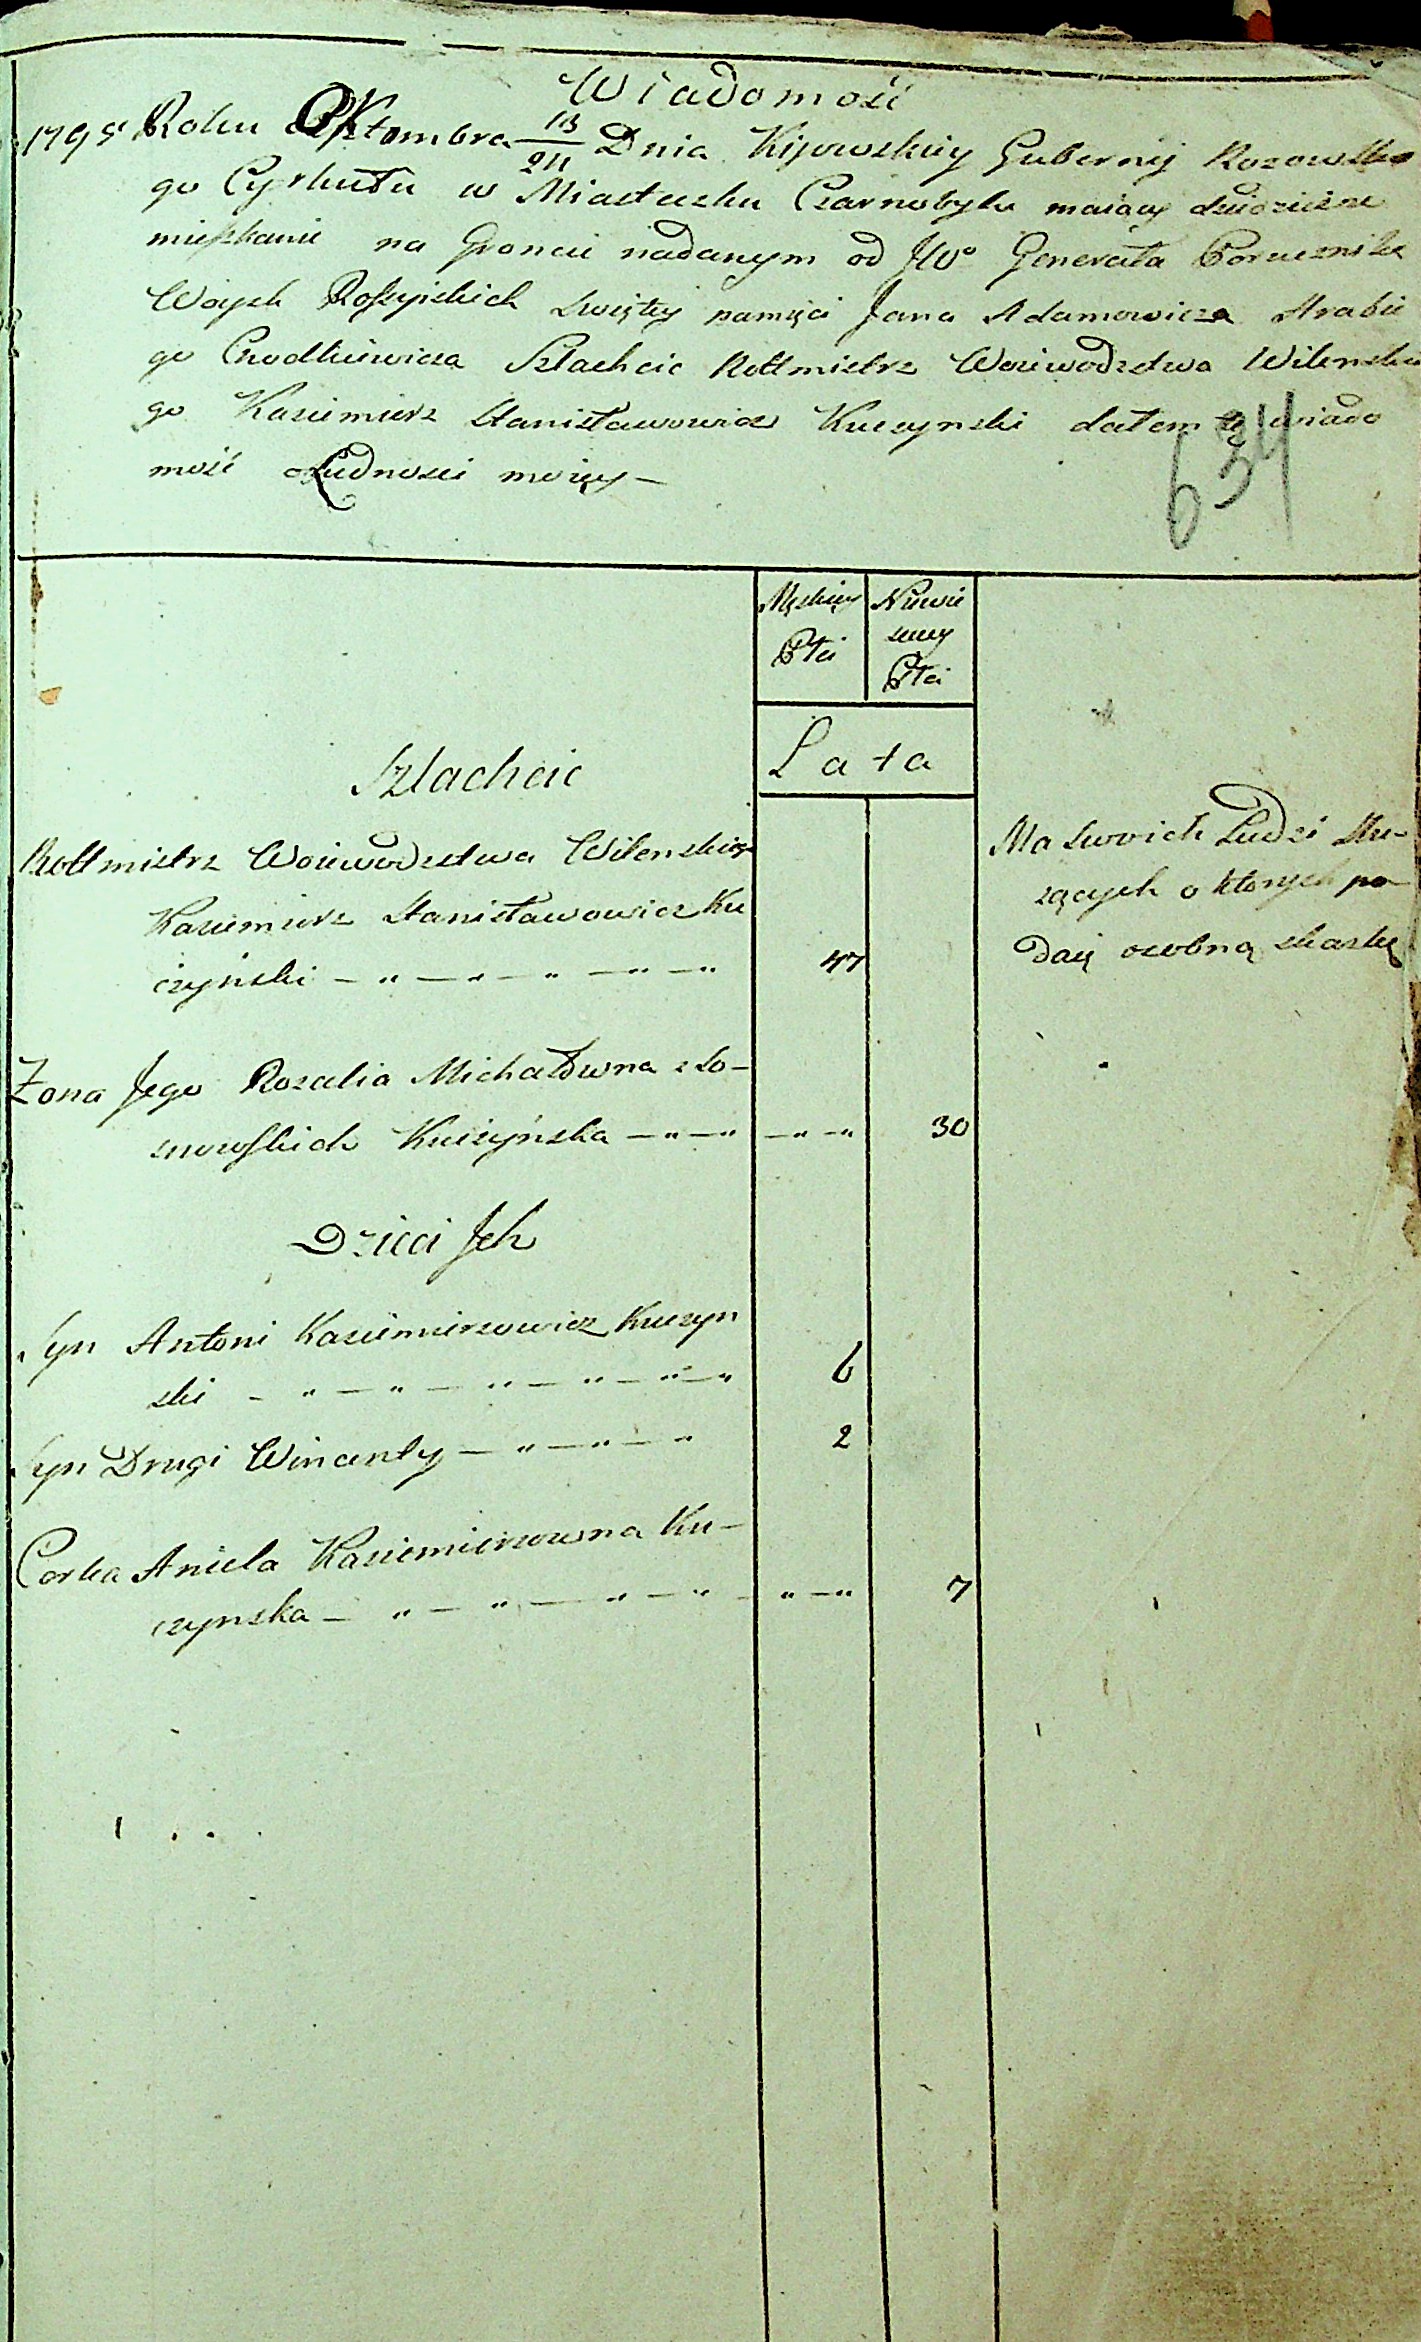 Wiadomość
1795 Roku Oktombra 13/24 Dnia Kijowskiey Gubernij
go Cyrkułu w Miasteczku Czarnobylu maiący dziedziczne
mieszkanie na Groncie nadanym od JWo Generała Porucznika
Woysk Rossyiskich Swiętey pamięci Jana Adamowicza Hrabie
go Chodkiewicza Szlachcic Rottmistrz Woiewodztwa Wilenskie
go Kazimierz Stanisławowicz Kuczynski dałem tę wiado
mość o Ludnosci moiey —
634
Męskiey Niewie
Płci sciey
Płci
Lata
Szlachcic
Rottmistrz Woiewodztwa Wilenskiego
Kazimierz Stanisławowicz Ku
czyński 47
Ma swoich Ludzi Słu-
zących o ktorych po-
daię osobną skaskę
Zona Jego Rozalia Michałowna z So-
snowskich Kuczyńska 30
Dzieci Ich
Syn Antoni Kazimierzowicz Kuczyn
ski 6
Syn Drugi Wincenty 2
Corka Aniela Kazimierzowna Ku-
czynska 7